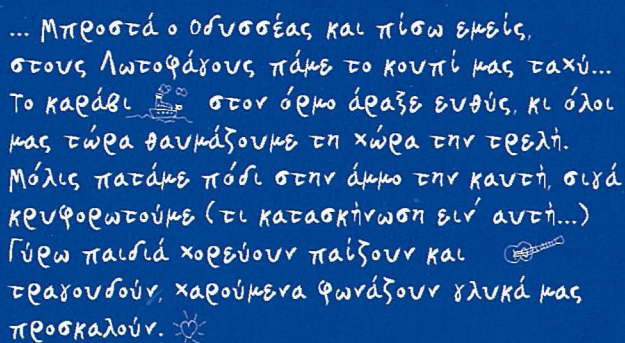 ... Μπροστά ο Οδυσσέας και πίσω εμείς,
στους Λωτοφάγους πάμε το κουπί μας ταχύ...
Το καράβι στον όρμο άραξε ευθύς, κι όλοι
μας τώρα θαυμάζουμε τη χώρα την τρελή.
Μόλις πατάμε πόδι στην άμμο την καυτή, σιγά
κρυφορωτούμε (τι κατασκήνωση ειν' αυτή...)
Γύρω παιδιά χορεύουν παίζουν και
τραγουδούν, χαρούμενα φωνάζουν γλυκά μας
προσκαλούν.